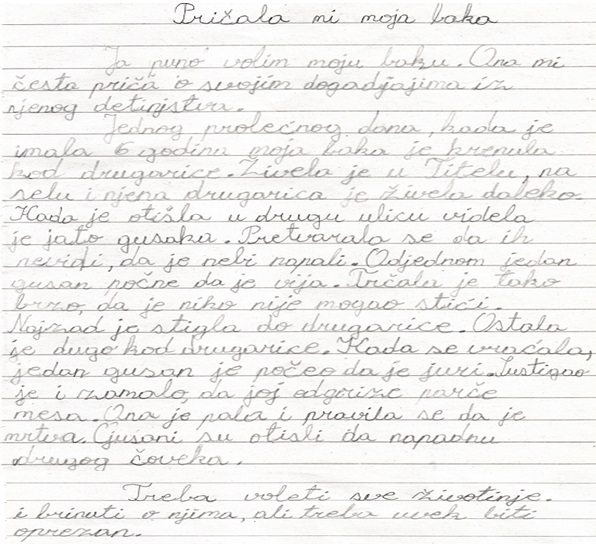 Pričala mi moja baka
Ja puno volim moju baku. Ona mi
često priča o svojim događjajima iz
njenog detinjstva.
Jednog prolećnog dana, kada je
imala 6 godina moja baka je krenula
kod drugarice. Živela je u Titelu, na
selu i njena drugarica je živela daleko.
Kada je otišla u drugu ulicu videla
je jato gusaka. Pretvarala se da ih
nevidi, da je nebi napali. Odjednom jedan
gusan počne da je vija. Trčala je tako
brzo, da je niko nije mogao stići.
Najzad je stigla do drugarice. Ostala
je dugo kod drugarice. Kada se vraćala,
jedan gusan je počeo da je juri. Sustigao
je i zamalo, da joj odgrize parče
mesa. Ona je pala i pravila se da je
mrtva. Gusani su otisli da napadnu
drugog čoveka.
Treba voleti sve životinje.
i brinuti o njima, ali treba uvek biti
oprezan.